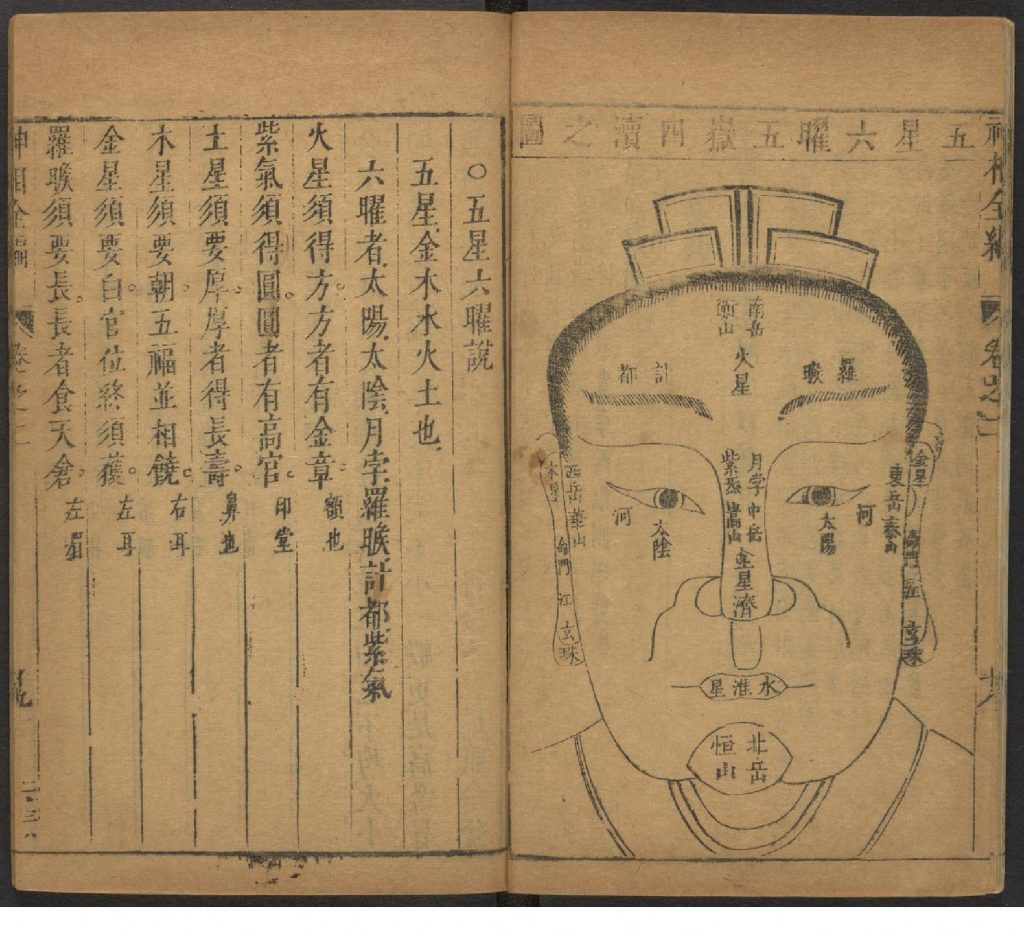 神相全編
五星六曜五嶽四瀆之圖
南岳
衡山
火星
羅睺
計都
月孛
紫氣
中岳
嵩山
土星
濟
河
太陽
河
太陰
金星
東岳泰山
命門
玄珠
木星
西岳華山
命門
江
玄珠
水淮星
北岳
恒山
○五星六曜說
五星金木水火土也
六曜者太陽太陰月孛羅睺計都紫氣
火星須得方。方者有金章。額也
紫氣須得圓。圓者有高官。印堂
土星須要厚。厚者得長壽。鼻也
木星須要朝。五福並相饒。右耳
金星須要白。官位終須獲。左耳
羅睺須要長。長者食天倉。左眉
神相全編
卷之二